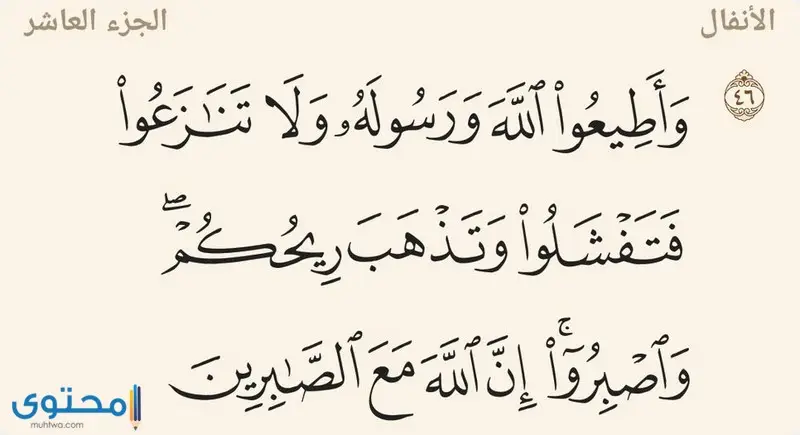 الأنفال الجزء العاشر
٤٦ وَأَطِيعُوا۟ ٱللَّهَ وَرَسُولَهُۥ وَلَا تَنَـٰزَعُوا۟
فَتَفْشَلُوا۟ وَتَذْهَبَ رِيحُكُمْ ۖ
وَٱصْبِرُوٓا۟ ۚ إِنَّ ٱللَّهَ مَعَ ٱلصَّـٰبِرِينَ
محتوى
muhtwa.com